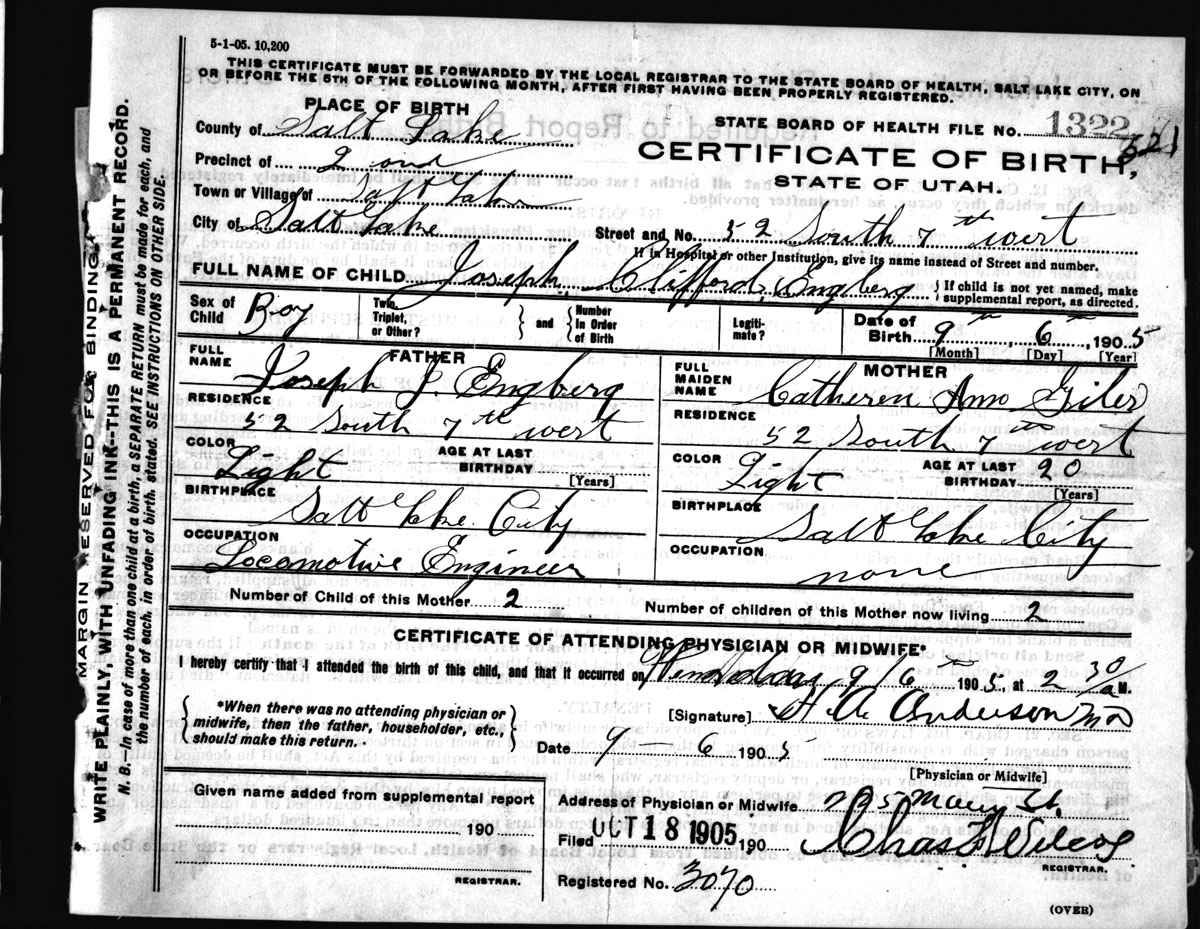 5-1-05. 10,200
THIS CERTIFICATE MUST BE FORWARDED BY THE LOCAL REGISTRAR TO THE STATE BOARD OF HEALTH, SALT LAKE CITY, ON
OR BEFORE THE 5TH OF THE FOLLOWING MONTH, AFTER FIRST HAVING BEEN PROPERLY REGISTERED.
PLACE OF BIRTH
County of Salt Lake
STATE BOARD OF HEALTH FILE No. 1322
CERTIFICATE OF BIRTH,
STATE OF UTAH.
Precinct of 2 ond
Town or Village of Salt Lake
City of Salt Lake
Street and No. 52 South 7th west
If in Hospital or other Institution, give its name instead of Street and number.
FULL NAME OF CHILD Joseph Clifford Engberg } If child is not yet named, make supplemental report, as directed.
Sex of Child Boy
Twin, Triplet, or Other? } and { Number In Order of Birth
Legiti- mate?
Date of Birth 9th, 6th, 1905
[Month] [Day] [Year]
FATHER
FULL NAME Joseph J. Engberg
RESIDENCE
52 South 7th west
COLOR Light AGE AT LAST BIRTHDAY [Years]
BIRTHPLACE
Salt Lake City
OCCUPATION
Locomotive Engineer
MOTHER
FULL MAIDEN NAME Catheren Ann Giles
RESIDENCE
52 South 7th west
COLOR Light AGE AT LAST BIRTHDAY 20 [Years]
BIRTHPLACE
Salt Lake City
OCCUPATION
none
Number of Child of this Mother 2
Number of children of this Mother now living 2
CERTIFICATE OF ATTENDING PHYSICIAN OR MIDWIFE*
I hereby certify that I attended the birth of this child, and that it occurred on 9/6th 1905, at 2 30/a M.
{ *When there was no attending physician or midwife, then the father, householder, etc., should make this return. }
[Signature] H A Anderson MD
Date 9 - 6 1905
[Physician or Midwife]
Given name added from supplemental report
190
REGISTRAR.
Address of Physician or Midwife
Filed OCT 18 1905 190 Chas F Wilcox
REGISTRAR.
Registered No. 3070
(OVER)
MARGIN RESERVED FOR BINDING
WRITE PLAINLY, WITH UNFADING INK--THIS IS A PERMANENT RECORD.
N. B.—In case of more than one child at a birth, a SEPARATE RETURN must be made for each, and
the number of each, in order of birth, stated. SEE INSTRUCTIONS ON OTHER SIDE.